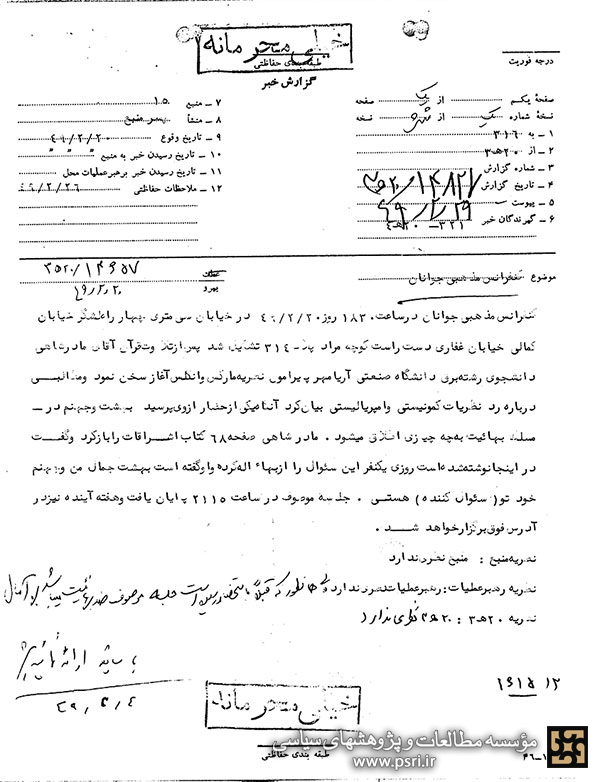 خیلی محرمانه
طبقه بندی حفاظتی
گزارش خبر
درجه فوریت
صفحهٔ یکم از یک صفحه
نسخهٔ شماره یک از شش نسخه
۱ ـ به ۳۱۶
۲ ـ از ۲۰ه۳
۳ ـ شماره گزارش
۴ ـ تاریخ گزارش
۵ ـ پیوست
۶ ـ گیرندگان خبر
۷ ـ منبع
۸ ـ منشأ
۹ ـ تاریخ وقوع ۴۹/۲/۲۰
۱۰ ـ تاریخ رسیدن خبر به منبع
۱۱ ـ تاریخ رسیدن خبر برهبر عملیات محل
۱۲ ـ ملاحظات حفاظتی ۴۹/۲/۲۶
موضوع کنفرانس مذهبی جوانان
کنفرانس مذهبی جوانان در ساعت ۱۸۳۰ روز ۴۹/۲/۲۰ در خیابان سی متری چهارراه لشگر خیابان
کمالی خیابان غفاری دست راست کوچه مراد پلاک ۳۱۴ تشکیل شد پس از تلاوت قرآن آقای مادرشاهی
دانشجوی رشته برق دانشگاه صنعتی آریامهر پیرامون نظریه مارکس وانگلس آغاز سخن نمود ومطالبی
درباره رد نظریات کمونیستی وامپریالیستی بیان کرد آنگاه یکی از حضار ازوی پرسید بهشت وجهنم در ـ
مسلک بهائیت به چه چیزی اطلاق میشود . مادرشاهی صفحه ۶۸ کتاب اشراقات را باز کرد وگفت
در اینجا نوشته شده است روزی یکنفر این سئوال را از بهاءاله کرده واو گفته است بهشت جمال من وجهنم
خود تو( سئوال کننده ) هستی . جلسه موصوف در ساعت ۲۱۱۵ پایان یافت وهفته آینده نیز در
آدرس فوق برگزار خواهد شد .
نظریه منبع : منبع نظری ندارد
نظریه رهبر عملیات : رهبر عملیات نظری ندارد
نظریه ۲۰ه۳ : نظری ندارد
خیلی محرمانه
طبقه بندی حفاظتی
مؤسسه مطالعات و پژوهشهای سیاسی
www.psri.ir